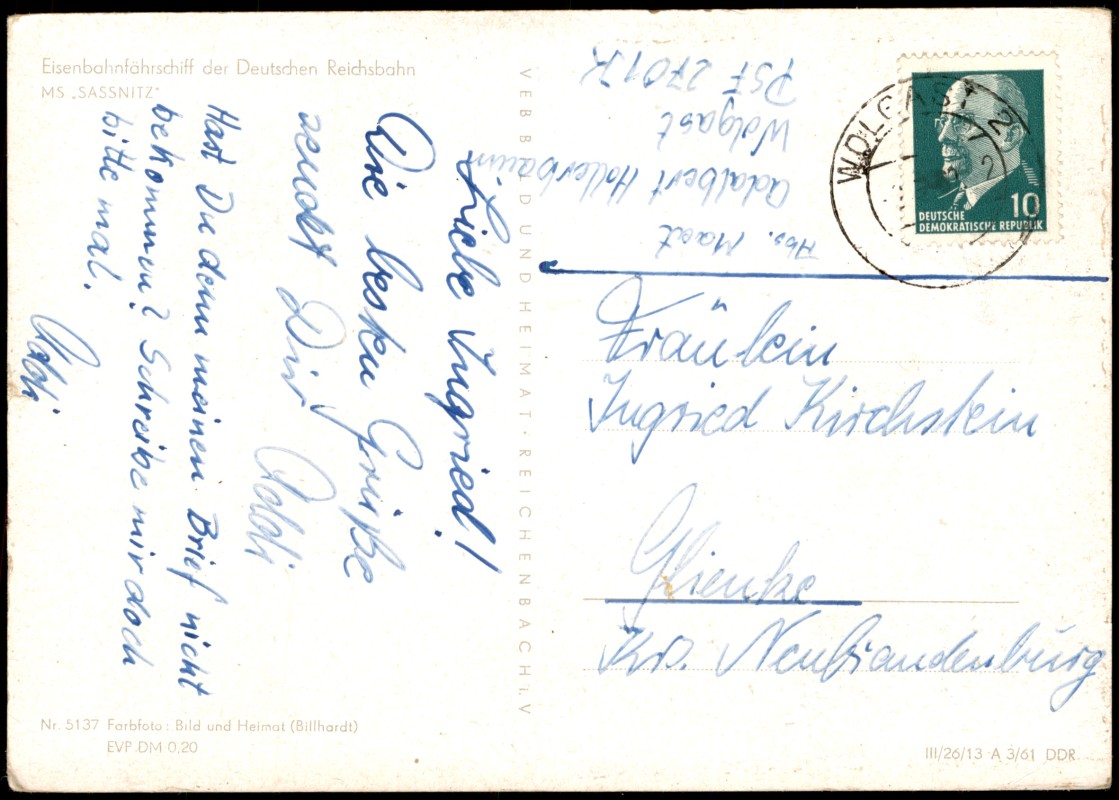 Eisenbahnfährschiff der Deutschen Reichsbahn
MS „SASSNITZ“
Liebe Ingried!
Die besten Grüße
sendet Dir
Addi
Hast Du denn meinen Brief nicht
bekommen? Schreibe mir doch
bitte mal.
Addi
Nr. 5137 Farbfoto: Bild und Heimat (Billhardt)
EVP DM 0,20
VEB BILD UND HEIMAT · REICHENBACH i. V
Abs. Maat
Adalbert Hollerbaum
Wolgast
PSF 2701 K
WOLGAST 2
DEUTSCHE
DEMOKRATISCHE REPUBLIK
10
Fräulein
Ingried Kirchstein
Glienke
Krs. Neubrandenburg
III/26/13 A 3/61 DDR